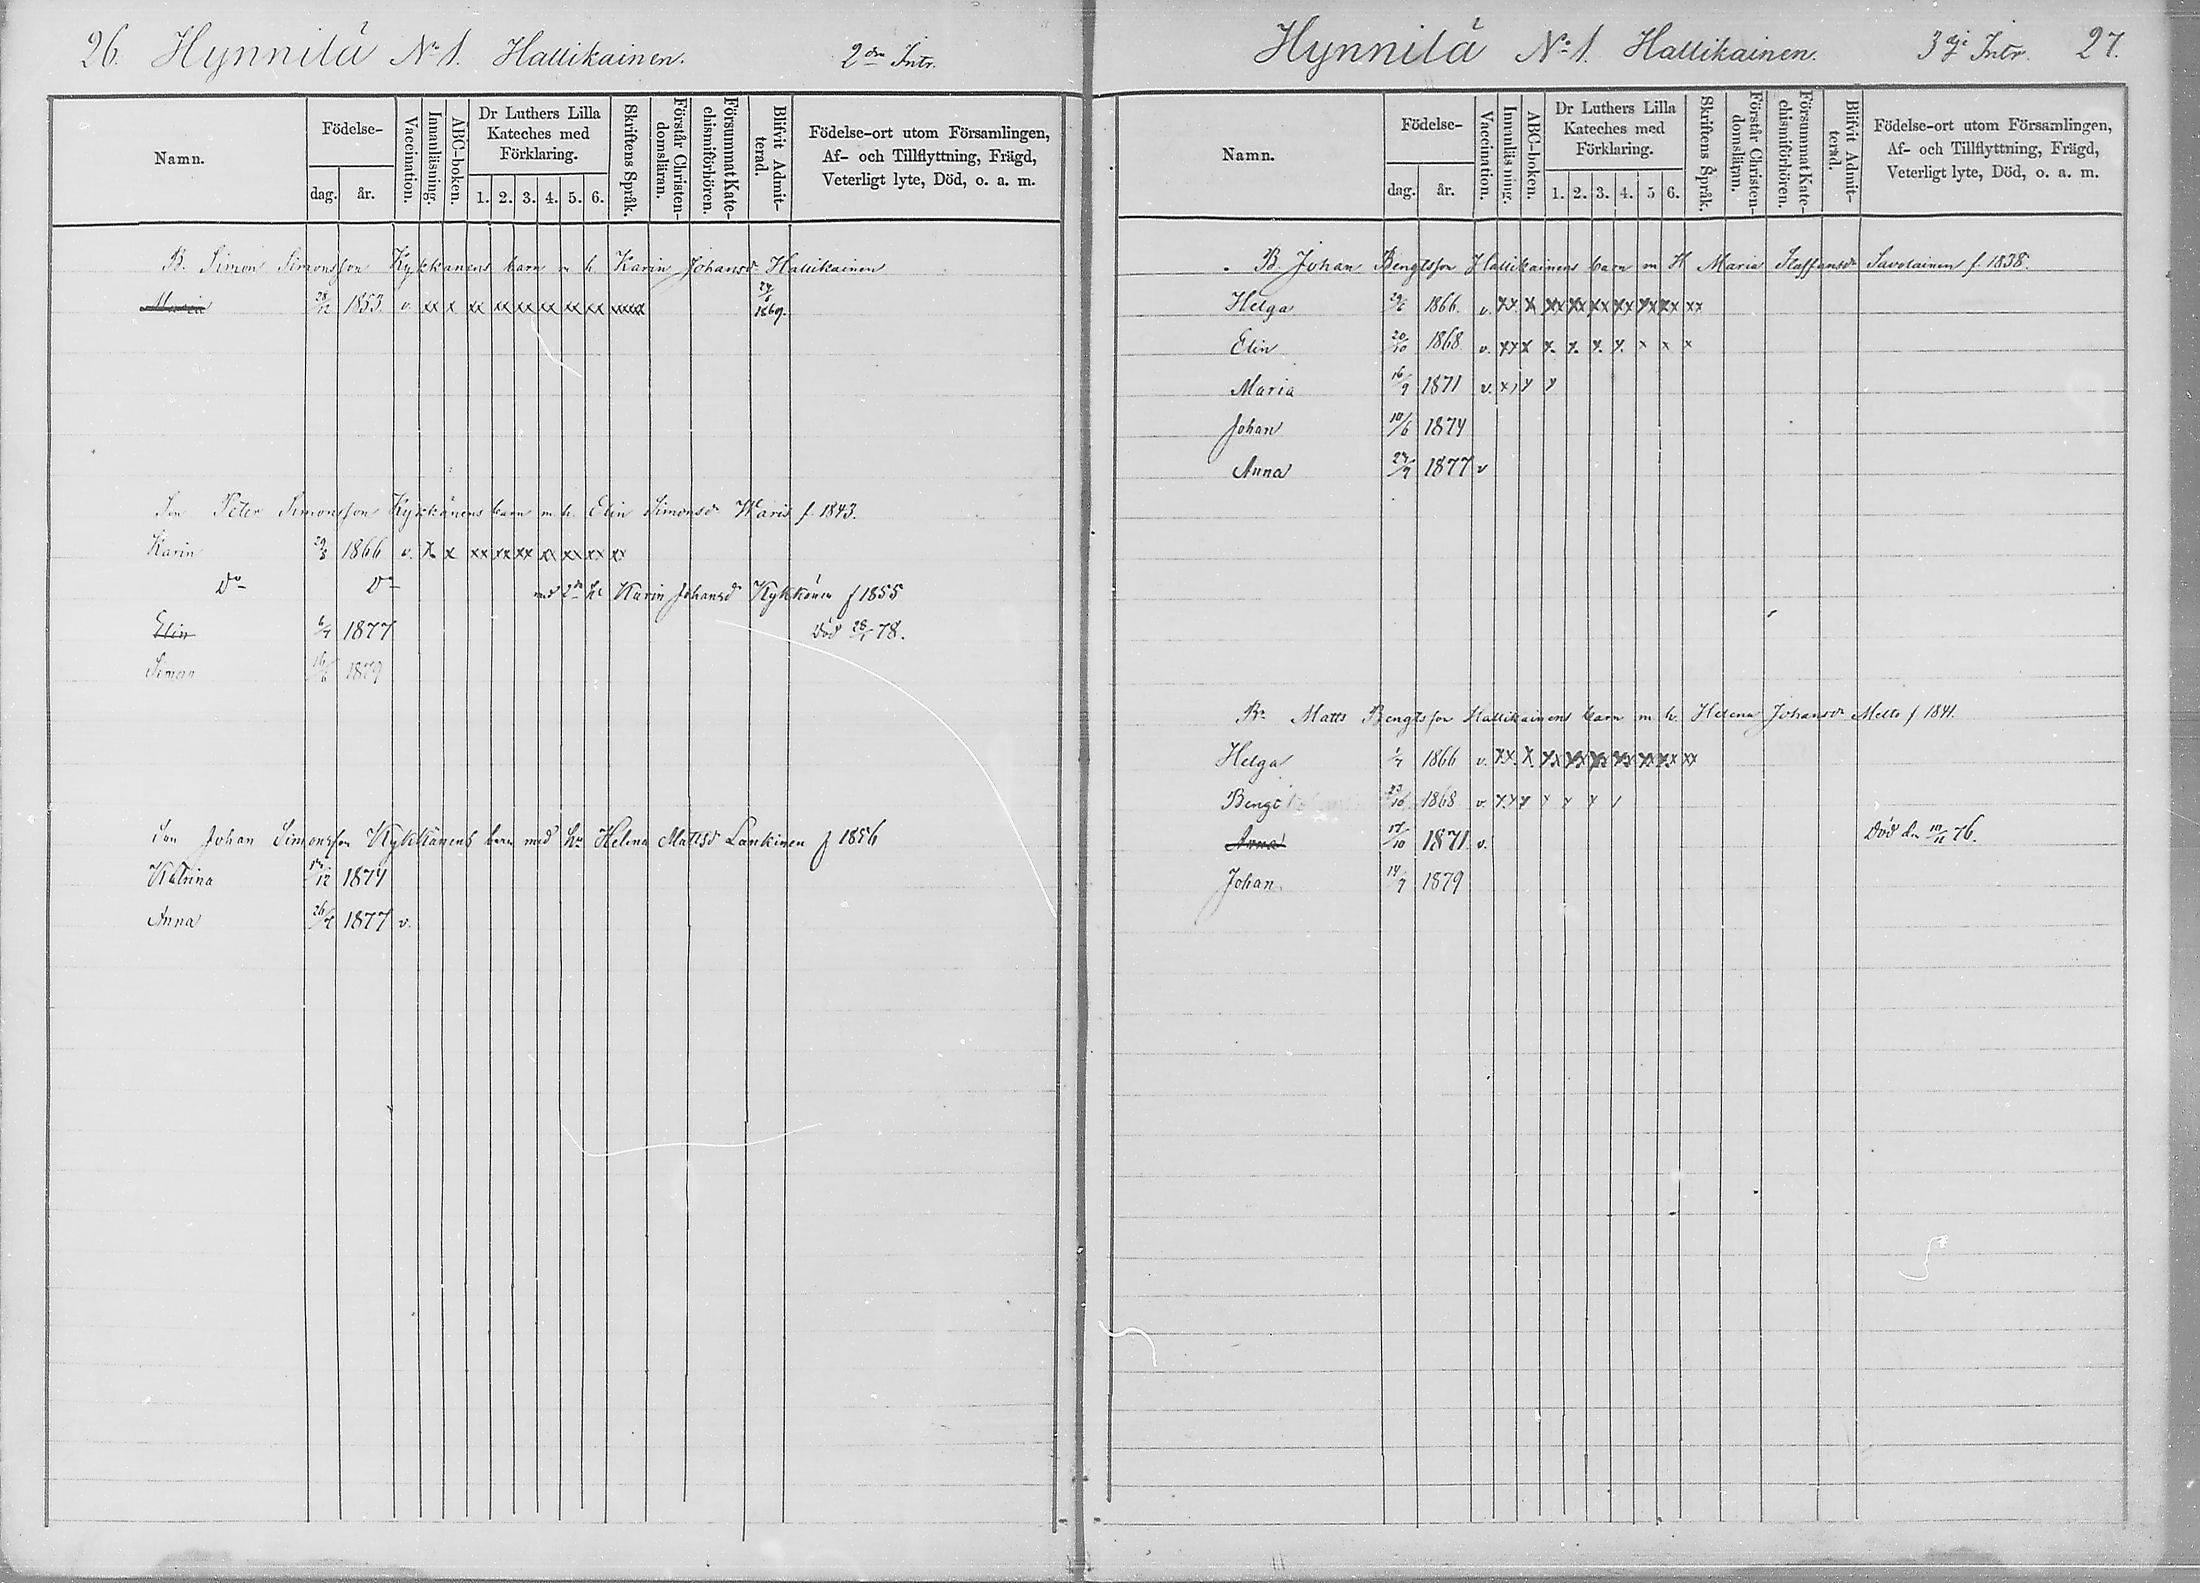 26. Hynnilä No 1. Hallikainen. 2dra Intr.
Namn.
Födelse-
dag. år.
Vaccination.
Innanläsning.
ABC-boken.
Dr Luthers Lilla
Kateches med
Förklaring.
1. 2. 3. 4. 5. 6.
Skriftens Språk.
Förstår Christen-
domsläran.
Försummat Kate-
chismiförhören.
Blifvit Admit-
terad.
Födelse-ort utom Församlingen,
Af- och Tillflyttning, Frägd,
Veterligt lyte, Död, o. a. m.
B. Simon Simonsson Kykkänens barn m h Karin Johansd Hallikainen
Maria 28/12 1853 v. xx x xx xx xx xx xx xx xxxx 24/6 1869.
Son Peter Simonsson Kykkänens barn m h. Elin Simonsd Waris f. 1843.
Karin 29/3 1866 v. x x xx xx xx xx xx xx xx
Do Do med 2dra h. Karin Johansd Kykkönen f 1855
Elin 6/4 1877 Död 28/1 78.
Simon 16/6 1879
Son Johan Simonsson Kykkänens barn med hu Helena Mattsd Lankinen f 1856
Katrina 12 1874
Anna 26/2 1877 v.
Hynnilä No 1. Hallikainen. 3dje Intr. 27.
Namn.
Födelse-
dag. år.
Vaccination.
Innanläsning.
ABC-boken.
Dr Luthers Lilla
Kateches med
Förklaring.
1. 2. 3. 4. 5 6.
Skriftens Språk.
Förstår Christen-
domsläran.
Försummat Kate-
chismiförhören.
Blifvit Admit-
terad.
Födelse-ort utom Församlingen,
Af- och Tillflyttning, Frägd,
Veterligt lyte, Död, o. a. m.
B Johan Bengtsson Hallikainens barn m H Maria Staffansd Savolainen f. 1838.
Helga 29/6 1866. v. xx x xx xx xx xx xx xx xx
Elin 20/10 1868 v. xx x x x x x x x x
Maria 16/9 1871 v. x x x
Johan 10/6 1874
Anna 1877 v
Br Matts Bengtsson Hallikainens barn m h. Helena Johansd Melto f 1841.
Helga 1/7 1866 v. xx x xx xx xx xx xx xx xx
Bengt 23/10 1868 v. xx x x x x
Anna 17/10 1871 v. Död den 10/12 76.
Johan 14/7 1879